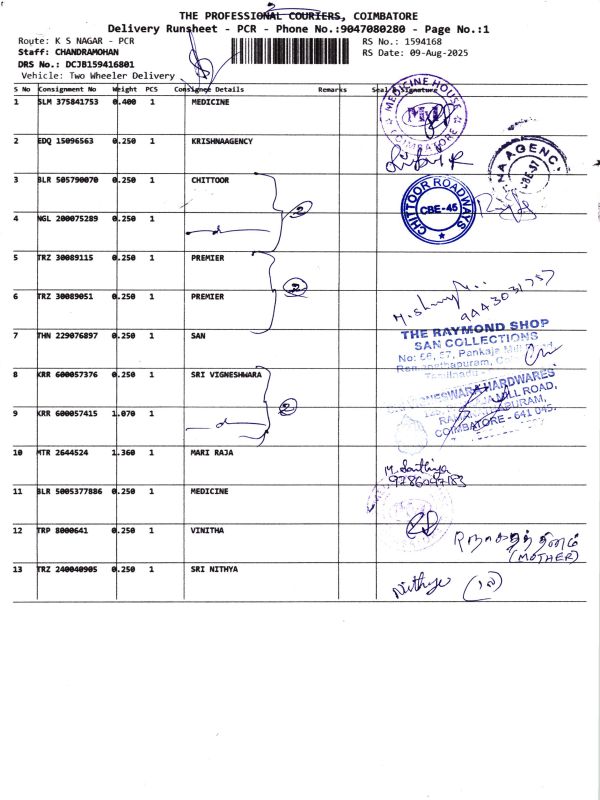 THE PROFESSIONAL COURIERS, COIMBATORE
Delivery Runsheet - PCR - Phone No.:9047080280 - Page No.:1
Route: K S NAGAR - PCR
RS No.: 1594168
Staff: CHANDRAMOHAN
RS Date: 09-Aug-2025
DRS No.: DCJB159416801
Vehicle: Two Wheeler Delivery
S No Consignment No Weight PCS Consignee Details Remarks Seal & Signature
1 SLM 375841753 0.400 1 MEDICINE
MEDICINE HOUSE COIMBATORE
2 EDQ 15096563 0.250 1 KRISHNAAGENCY
AGENC CBE-37
3 BLR 505790070 0.250 1 CHITTOOR
CHITTOOR ROADWAYS CBE-45
2
4 NGL 200075289 0.250 1
d
5 TRZ 30089115 0.250 1 PREMIER
2
6 TRZ 30089051 0.250 1 PREMIER
9443031757
7 THN 229076897 0.250 1 SAN
THE RAYMOND SHOP
SAN COLLECTIONS
8 KRR 600057376 0.250 1 SRI VIGNESHWARA
2
HARDWARES
MILL ROAD,
COIMBATORE - 641 045.
9 KRR 600057415 1.070 1
d
10 MTR 2644524 1.360 1 MARI RAJA
M. Santhiya
9786047183
11 BLR 5005377886 0.250 1 MEDICINE
12 TRP 8000641 0.250 1 VINITHA
(MOTHER)
13 TRZ 240040905 0.250 1 SRI NITHYA
Nithya